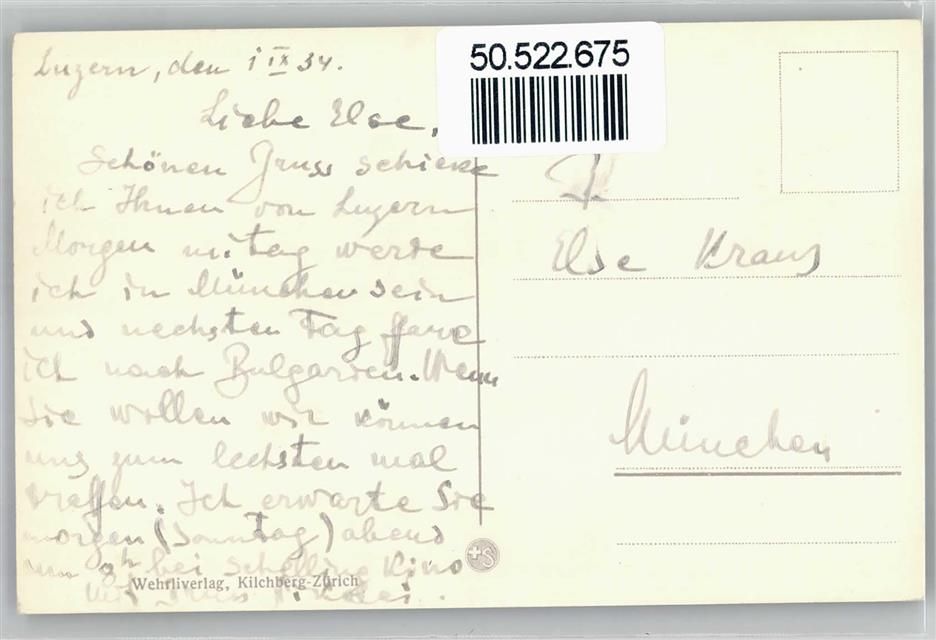 50.522.675
Luzern, den 1 IX 34.
Liebe Else,
Schönen Gruss schicke
ich Ihnen von Luzern
Morgen mitag werde
ich in München sein
und nechsten Tag fare
ich nach Bulgarien. Wenn
Sie wollen wir können
uns zum lechsten mal
treffen. Ich erwarte Sie
morgen (Sonntag) abend
um 8h bei Schelling Kino
Mit Gruss
Wehrliverlag, Kilchberg-Zürich
Else Kraus
München
+S